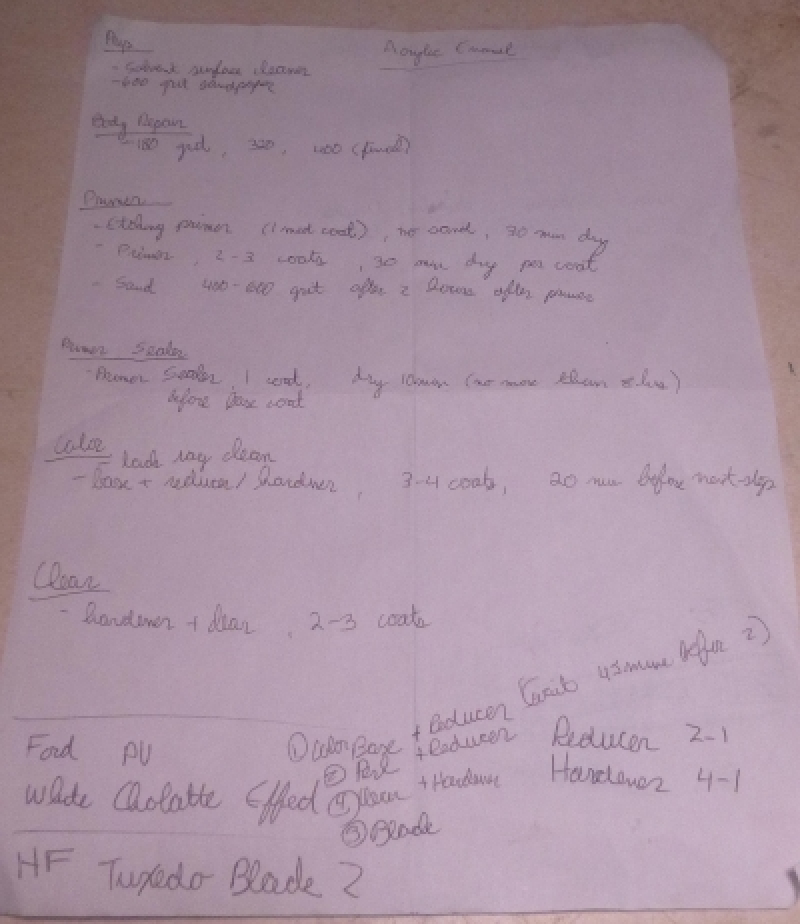 Acrylic Enamel
Prep
- Solvent surface cleaner
- 600 grit sandpaper
Body Repair
- 180 grit, 320, 400 (final)
Primer
- Etching primer (1 med coat), no sand, 30 min dry
- Primer, 2-3 coats, 30 min dry per coat
- Sand 400-600 grit after 2 hours after primer
Primer Sealer
- Primer Sealer, 1 coat, dry 10min (no more than hrs)
before base coat
Color
- tack rag clean
- base + reducer / hardner, 3-4 coats, 20 min before next step
Clear
- hardener + clear, 2-3 coats
Ford PU
White Cholatte Effect
① Color Base + Reducer (wait 45 mins before 2)
② Perl + Reducer
④ Clear + Hardener
⑤ Blade
Reducer 2-1
Hardener 4-1
HF Tuxedo Blade 2